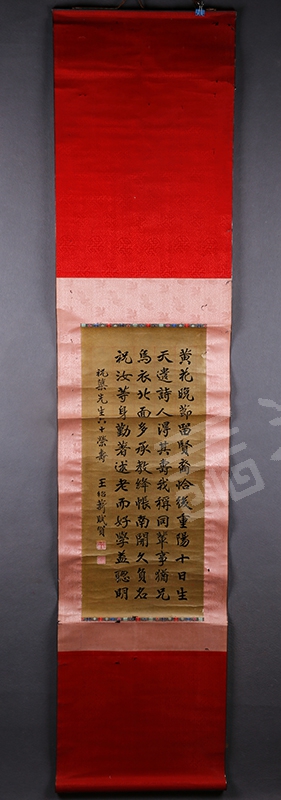 黄花晚節留賢裔恰後重陽十日生
天遣詩人得其壽我稱同輩事猶兄
烏衣北面多承教絳帳南開久負名
祝汝等身勤著述老而好學益聰明
先生六十榮壽
王 賦賀